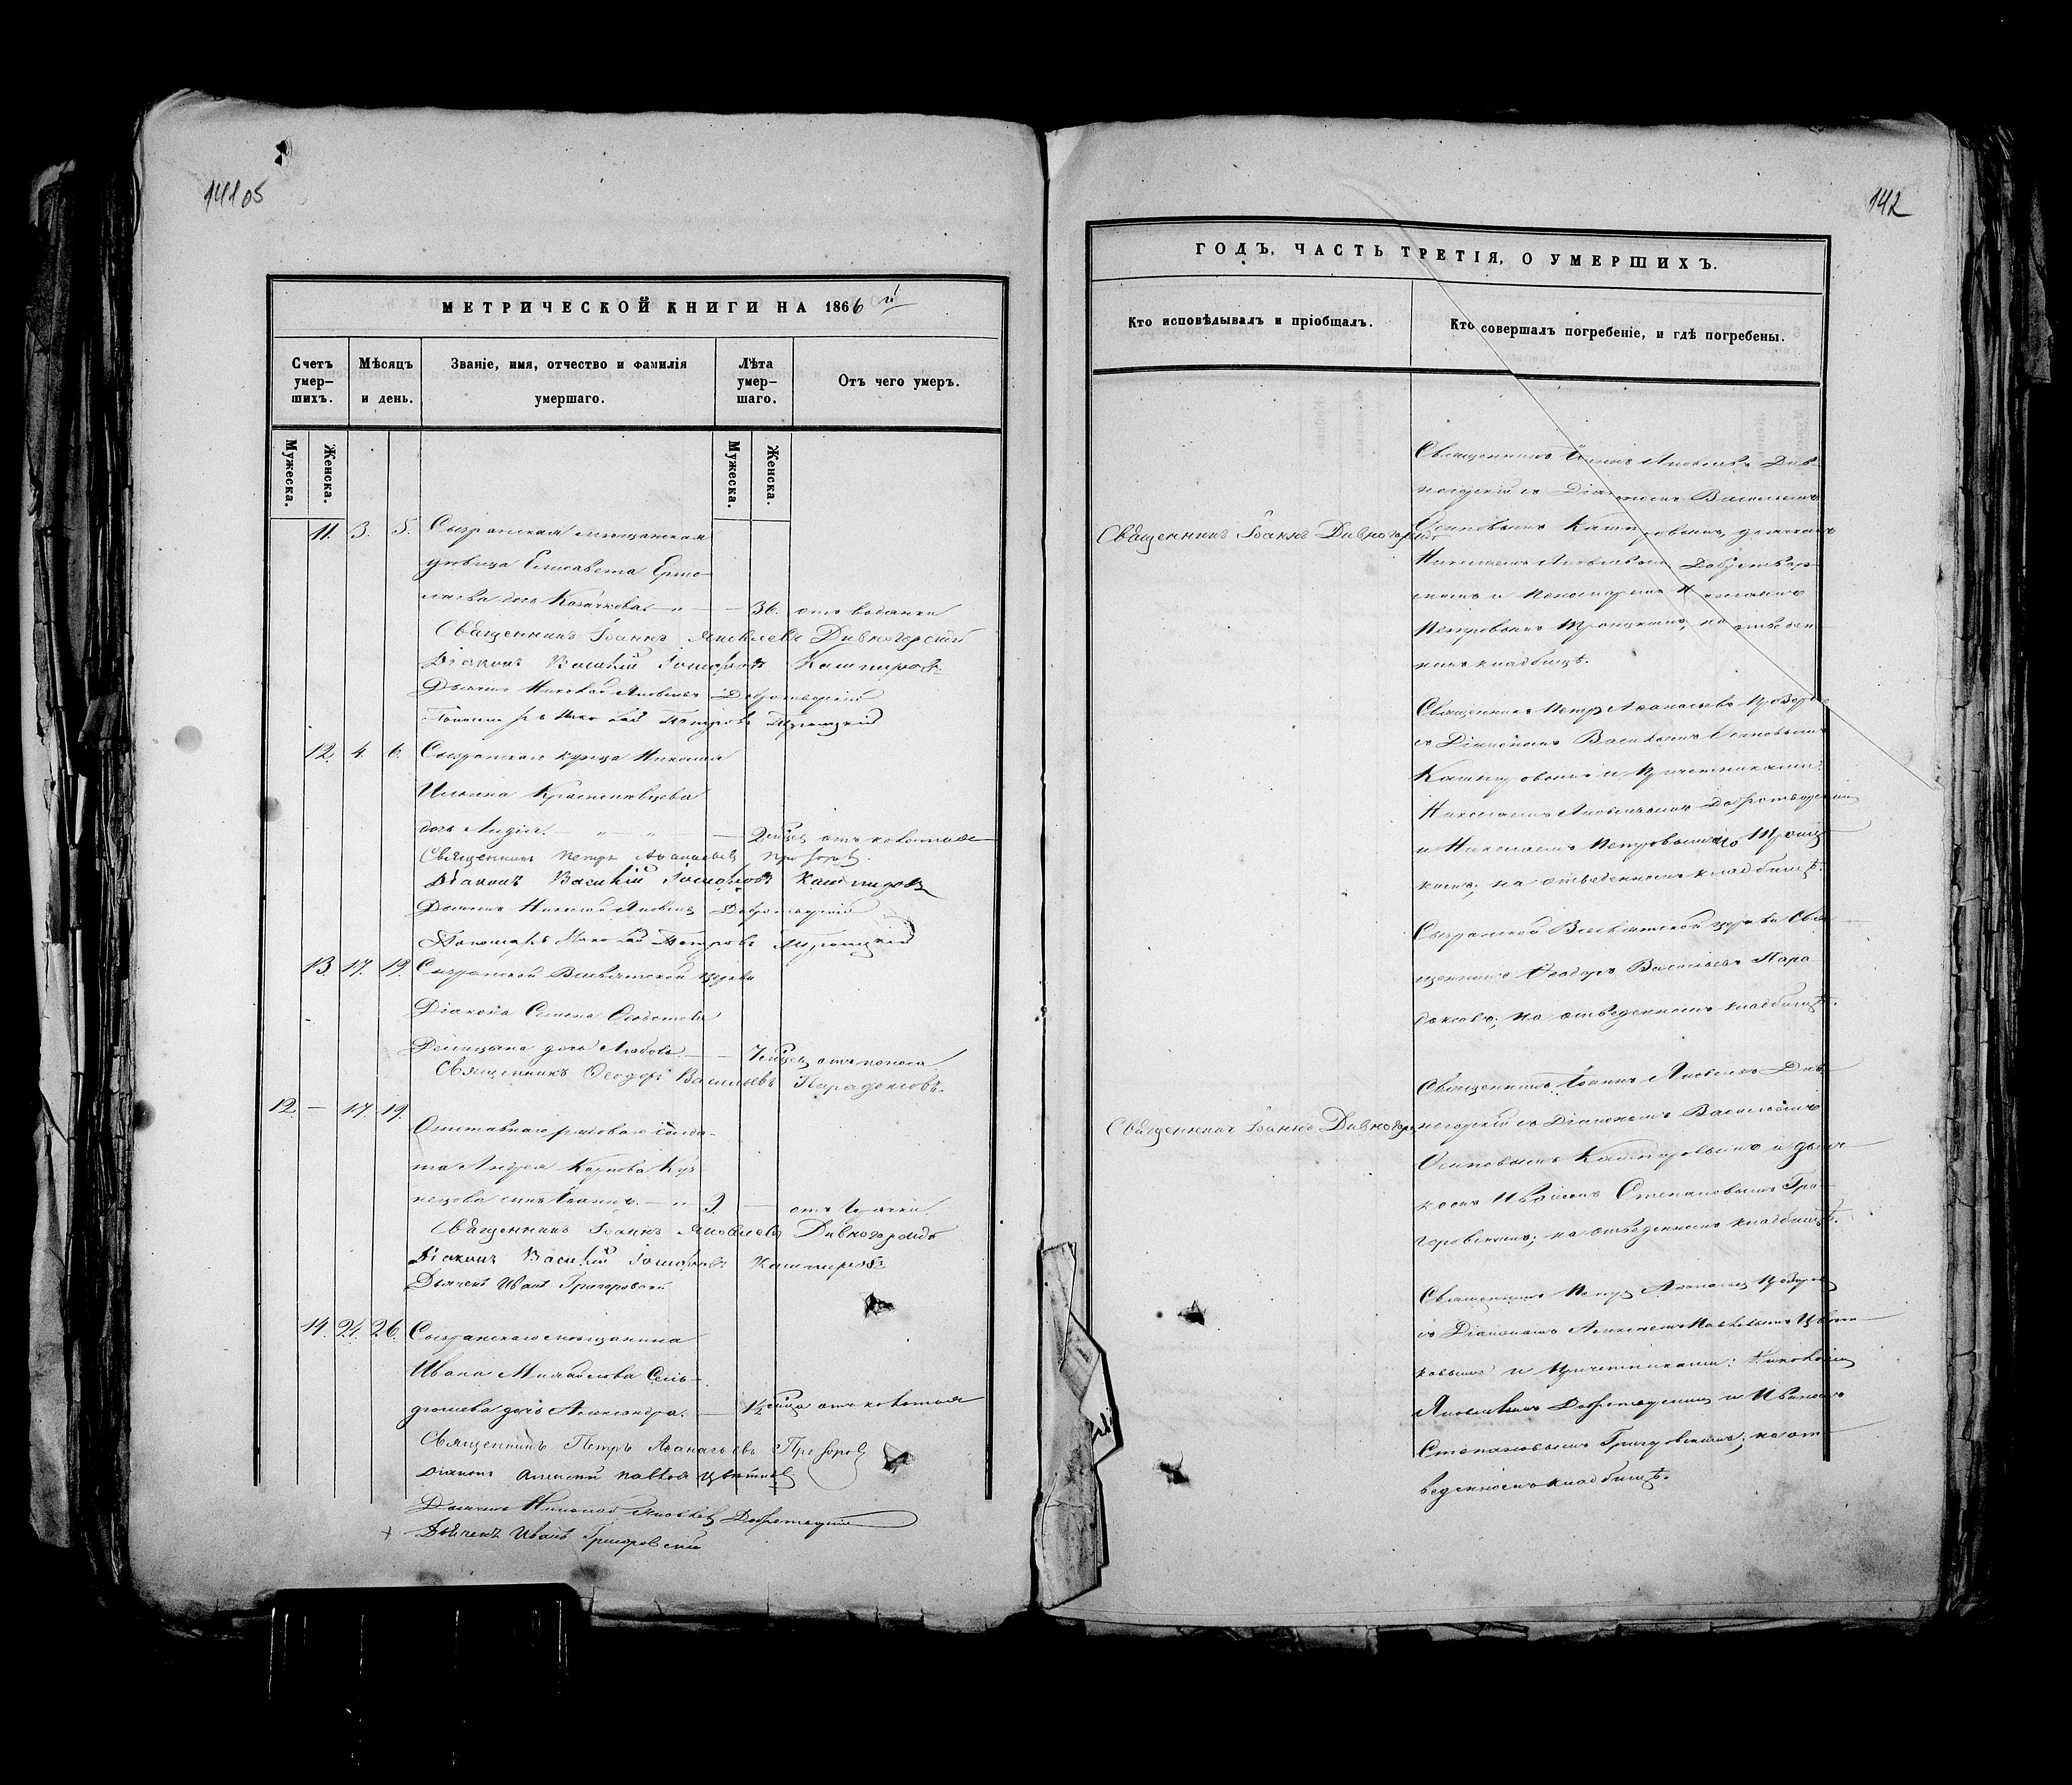 141об
МЕТРИЧЕСКОЙ КНИГИ НА 1866 й
Счетъ умер-шихъ.
Мѣсяцъ и день.
Званіе, имя, отчество и фамилія умершаго.
Лѣта умер-шаго.
Отъ чего умеръ.
Мужеска.
Женска.
Мужеска.
Женска.
11. 3. 5. Сызранская мѣщанская
вдовица Елисавета Ермо-
лаева Козачкова. — 36. отъ водянки
Священникъ Іоаннъ Яковлевъ Дивногорскій
Діаконъ Василій Кашпировъ
Дьячекъ Николай Яковлевъ Добротворскій
Пономарь Николай Петровъ Троицкій
12. 4. 6. Сызранскаго купца Николая
Ильина
дочь Лидія. — 2 мѣсяц отъ коклюша
Священникъ Петръ Аѳанасьевъ Прозоровъ.
Діаконъ Василій Кашпировъ
Дьячекъ Николай Яковлевъ Добротворскій
Пономарь Николай Петровъ Троицкій
13. 17. 19. Сызранской Всесвятской церкви
Діакона Семена
дочь Любовь — 7 мѣсяц отъ поноса.
Священникъ Ѳеодоръ Васильевъ Парадоксовъ.
12. — 17. 19.
Отставнаго рядоваго солда-
та Андрея Карпова Куз-
нецова сынъ Іоаннъ. — 9. —
Священникъ Іоаннъ Яковлевъ Дивногорскій
Діаконъ Василій Кашпировъ
Дьячекъ Иванъ Григоровскій
14. 24. 26. Сызранскаго мѣщанина
Ивана Михайлова Сель-
дюшева дочь Александра. — 1½ отъ коклюша
Священникъ Петръ Аѳанасьевъ Прозоровъ
Діаконъ Алексій Павловъ Цвѣтковъ
Дьячекъ Николай Яковлевъ Добротворскій
Дьячекъ Иванъ Григоровскій
142
ГОДЪ, ЧАСТЬ ТРЕТІЯ, О УМЕРШИХЪ.
Кто исповѣдывалъ и пріобщалъ.
Кто совершалъ погребеніе, и гдѣ погребены.
Священникъ Іоаннъ Дивногорскій
Священникъ Іоаннъ Яковлевъ Див-
ногорскій съ Діакономъ Васильемъ
Осиповымъ Кашпировымъ, дьячкомъ
Николаемъ Яковлевымъ Добротвор-
скимъ и Пономаремъ Николаемъ
Петровымъ Троицкимъ, на отведен-
номъ кладбищѣ.
Священникъ Петръ Аѳанасьевъ Прозоровъ
съ Діакономъ Васильемъ Осиповымъ
Кашпировымъ и Причетниками:
Николаемъ Яковлевымъ Добротворскимъ
и Николаемъ Петровымъ Троиц-
кимъ; на отведенномъ кладбищѣ.
Сызранской Всесвятской церкви Свя-
щенникъ Ѳеодоръ Васильевъ Пара-
доксовъ; на отведенномъ кладбищѣ.
Священникъ Іоаннъ Дивногор
Священникъ Іоаннъ Яковлевъ Див-
ногорскій съ Діакономъ Васильемъ
Осиповымъ Кашпировымъ и дьяч-
комъ Иваномъ Степановымъ Гри-
горовскимъ; на отведенномъ кладбищѣ.
Священникъ Петръ Аѳанасьевъ Прозоровъ
съ Діакономъ Алексіемъ Павловымъ Цвѣт-
ковымъ и Причетниками: Николаемъ
Яковлевымъ Добротворскимъ и Иваномъ
Степановымъ Григоровскимъ; на от-
веденномъ кладбищѣ.